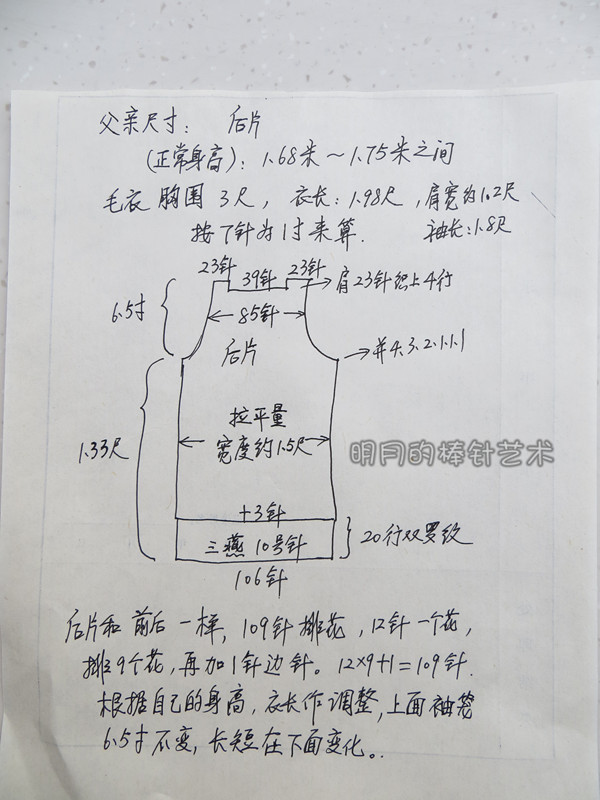 父亲尺寸： 后片
(正常身高)：1.68米～1.75米之间
毛衣 胸围 3尺，衣长：1.98尺，肩宽约1.2尺
按7针为1寸来算. 袖长：1.8尺
23针 39针 23针 肩23针织上4行
6.5寸 85针
后片 并4.3.2.1.1.1
拉平量
1.33尺 宽度约1.5尺
明月的棒针艺术
+3针
三燕 10号针 20行双罗纹
106针
后片和 前后 一样，109针 排花，12针一个花，
排9个花，再加1针边针。12×9+1=109针.
根据自己的身高，衣长作调整，上面袖笼
6.5寸 不变，长短在下面变化。.